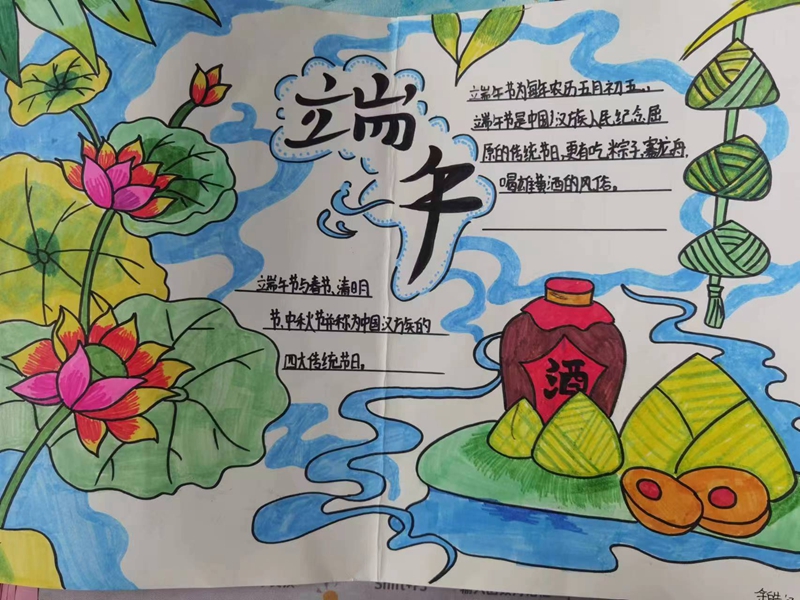 端午
端午节为每年农历五月初五,,
端午节是中国汉族人民纪念屈
原的传统节日,更有吃米粽子,赛龙舟,
喝雄黄酒的风传。
端午节与春节、清明
节、中秋节并称为中国汉族的
四大传统节日。
酒